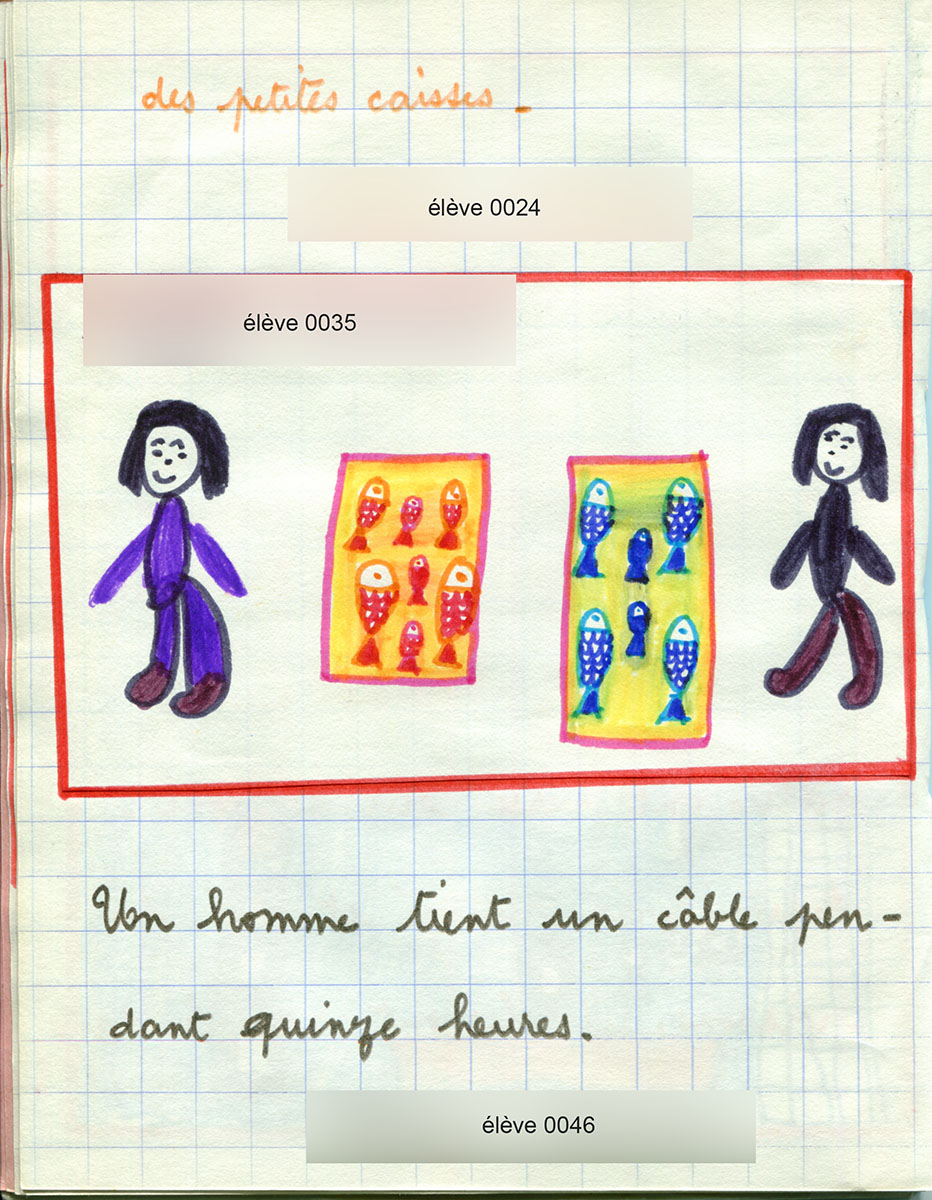 des petites caisses -
élève 0024
élève 0035
Un homme tient un câble pen-
dant quinze heures.
élève 0046